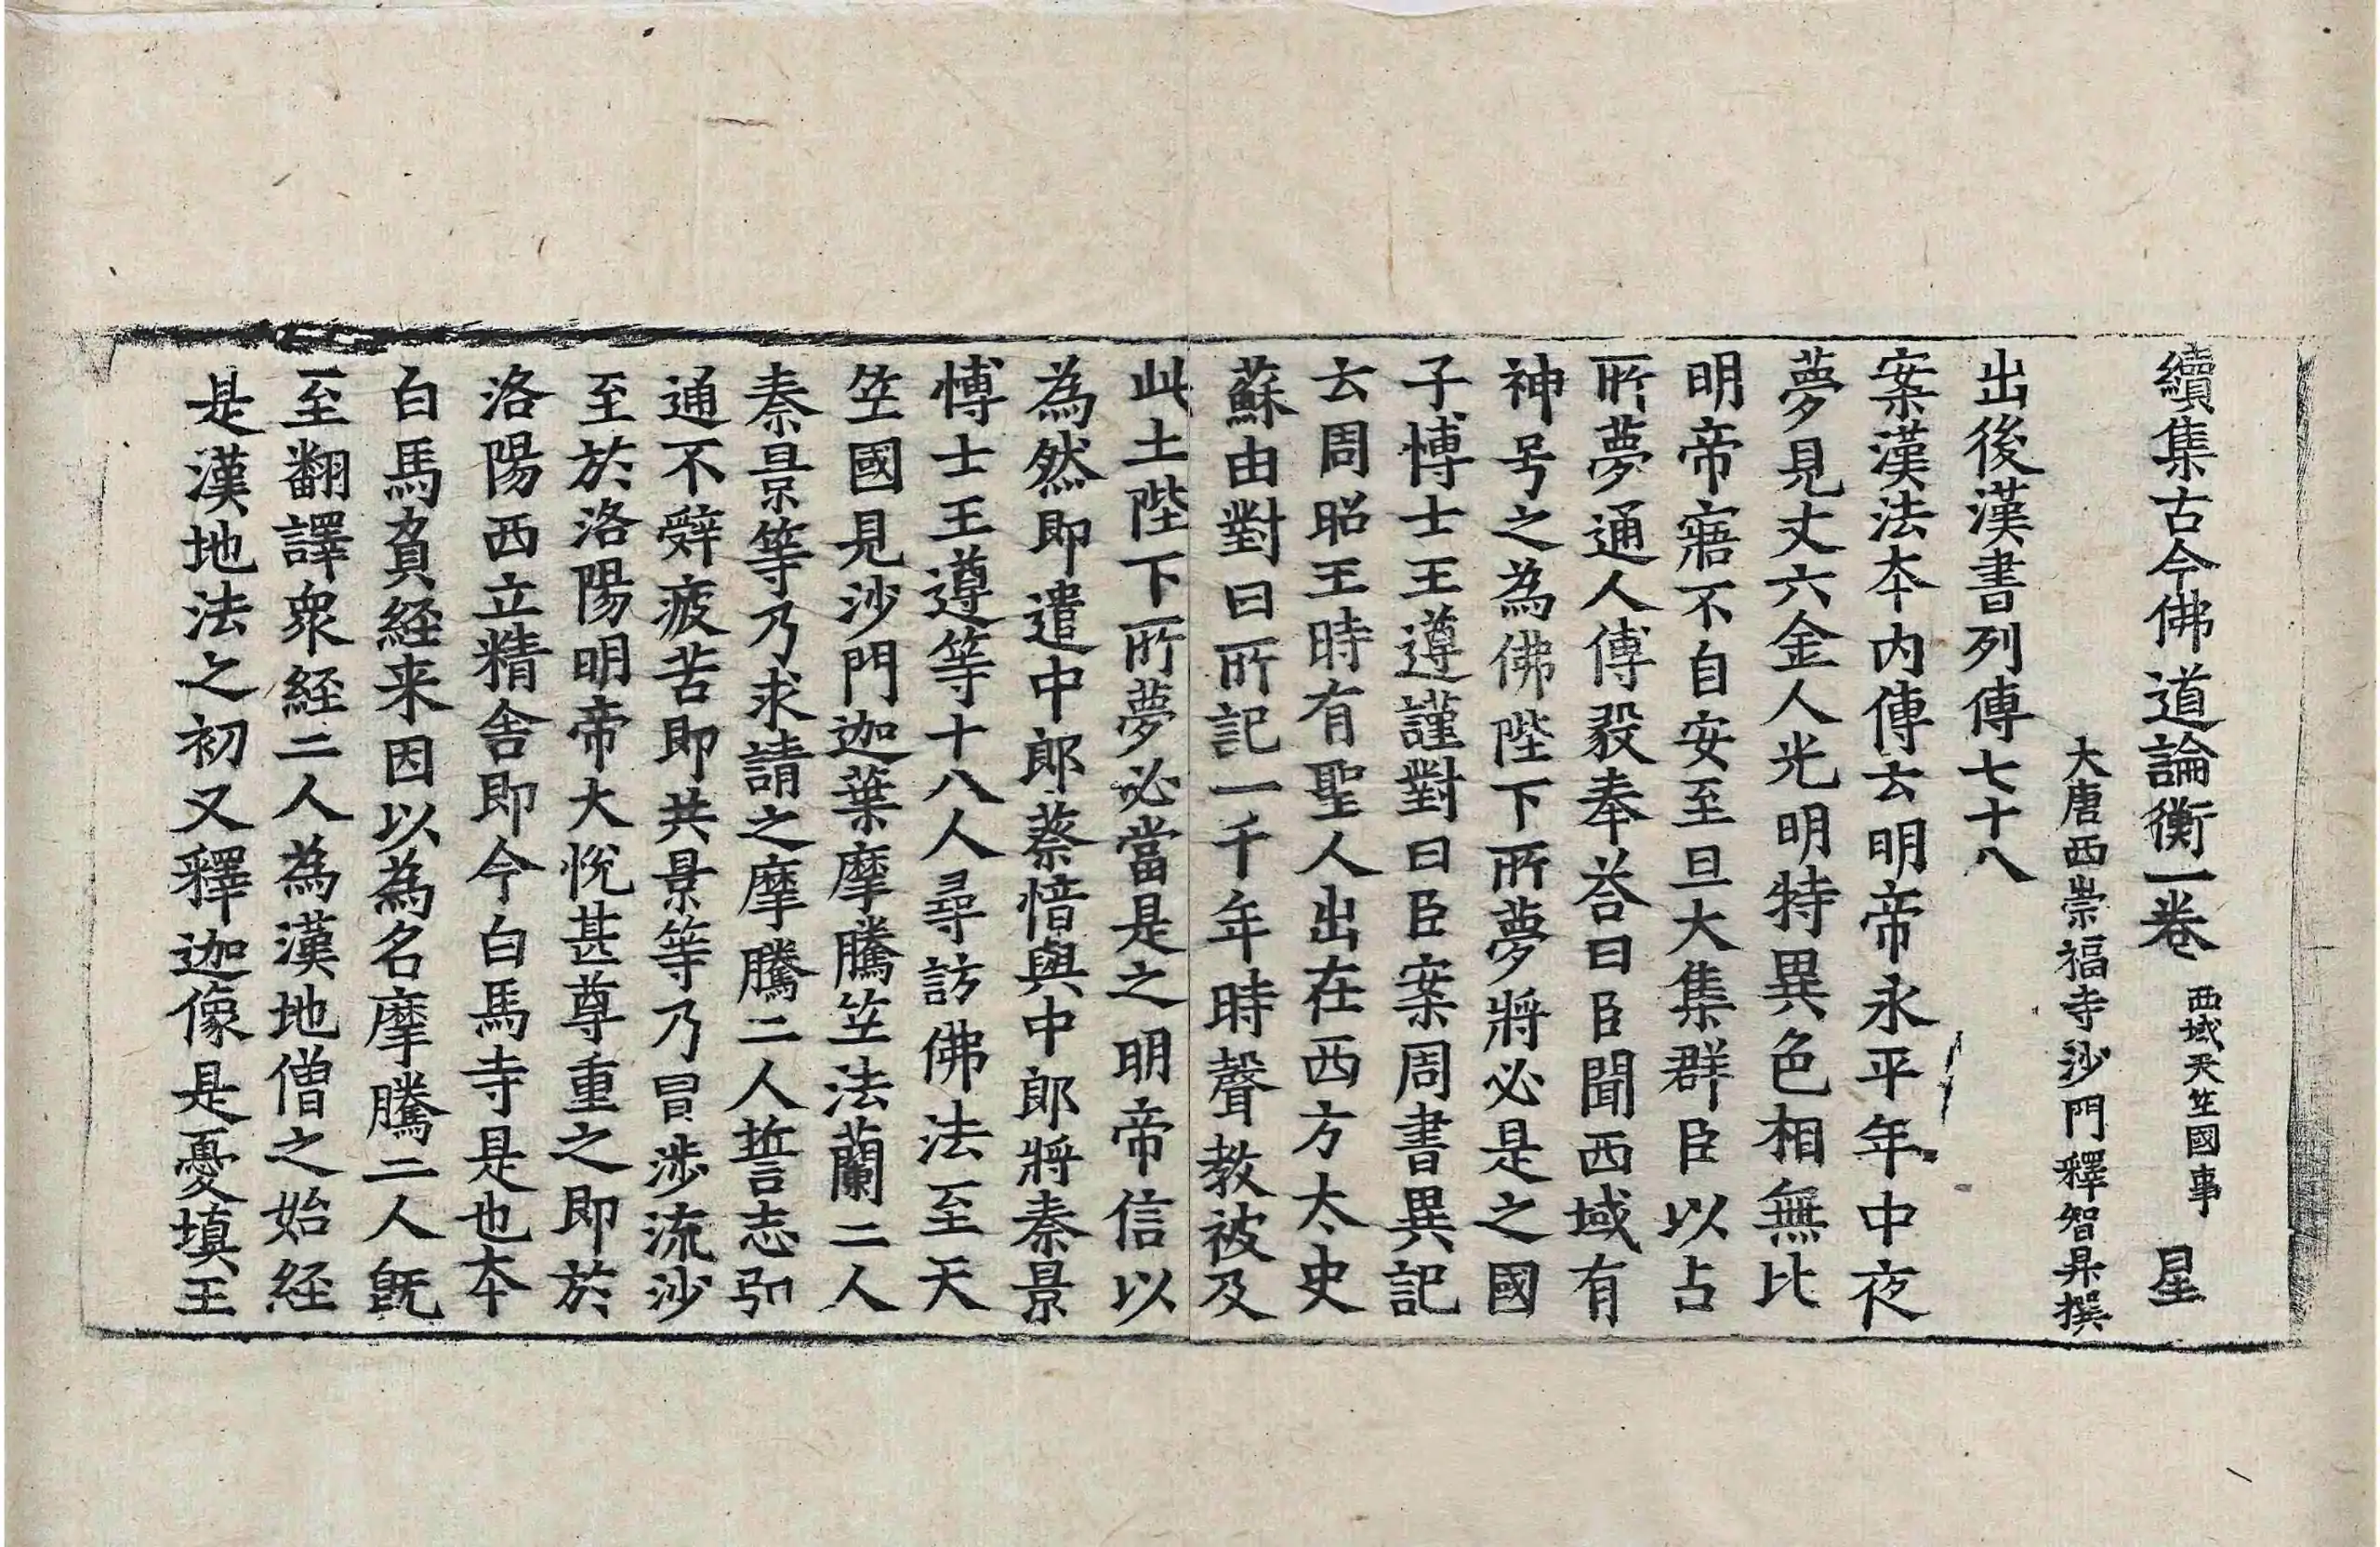 續集古今佛道論衡一卷 西域天竺國事 星
大唐西崇福寺沙門釋智昇撰
出後漢書列傳七十八
案漢法本内傳云明帝永平年中夜
夢見丈六金人光明特異色相無比
明帝寤不自安至旦大集群臣以占
所夢通人傅毅奉荅曰臣聞西域有
神号之為佛陛下所夢將必是之國
子博士王遵謹對曰臣案周書異記
云周昭王時有聖人出在西方太史
蘇由對曰所記一千年時聲教被及
此土陛下所夢必當是之明帝信以
為然即遣中郎蔡愔與中郎將秦景
博士王遵等十八人尋訪佛法至天
竺國見沙門迦葉摩騰竺法蘭二人
秦景等乃求請之摩騰二人誓志弘
通不辤疲苦即共景等乃冒涉流沙
至於洛陽明帝大悅甚尊重之即於
洛陽西立精舍即今白馬寺是也本
白馬負経来因以為名摩騰二人既
至翻譯衆経二人為漢地僧之始経
是漢地法之初又釋迦像是憂填王